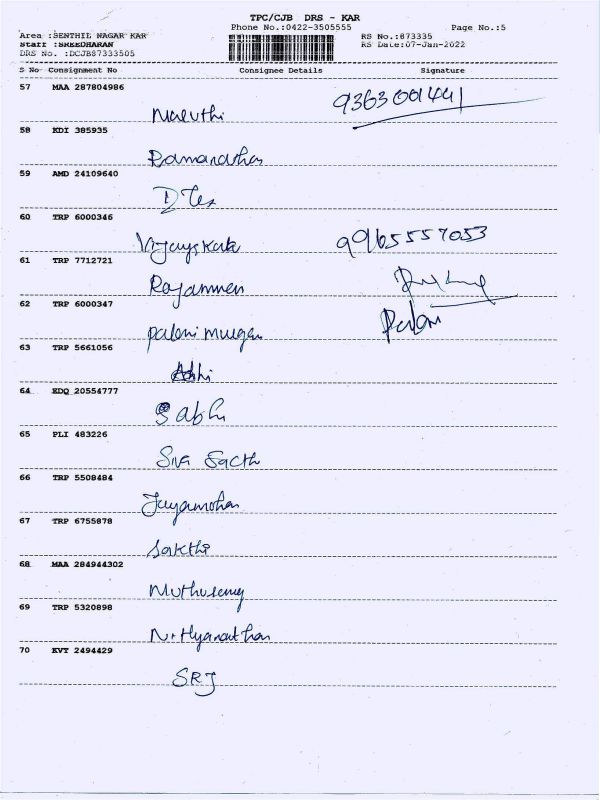 TPC/CJB DRS - KAR
Phone No.:0422-3505555 Page No.:5
Area :SENTHIL NAGAR KAR RS No.:873335
Staff :SREEDHARAN RS Date:07-Jan-2022
DRS No. :DCJB87333505
S No Consignment No Consignee Details Signature
57 MAA 287804986
Maruthi 9363001441
58 KDI 385935
Ramanathan
59 AMD 24109640
D Tex
60 TRP 6000346
Vijayskate 9965557053
61 TRP 7712721
Rajammen
62 TRP 6000347
Palani murgan Palani
63 TRP 5661056
Abhi
64 EDQ 20554777
Sabhi
65 PLI 483226
Siva Sacth
66 TRP 5508484
Jayamohan
67 TRP 6755878
Sakthi
68 MAA 284944302
Muthusamy
69 TRP 5320898
Nithyanathan
70 KVT 2494429
SRJ